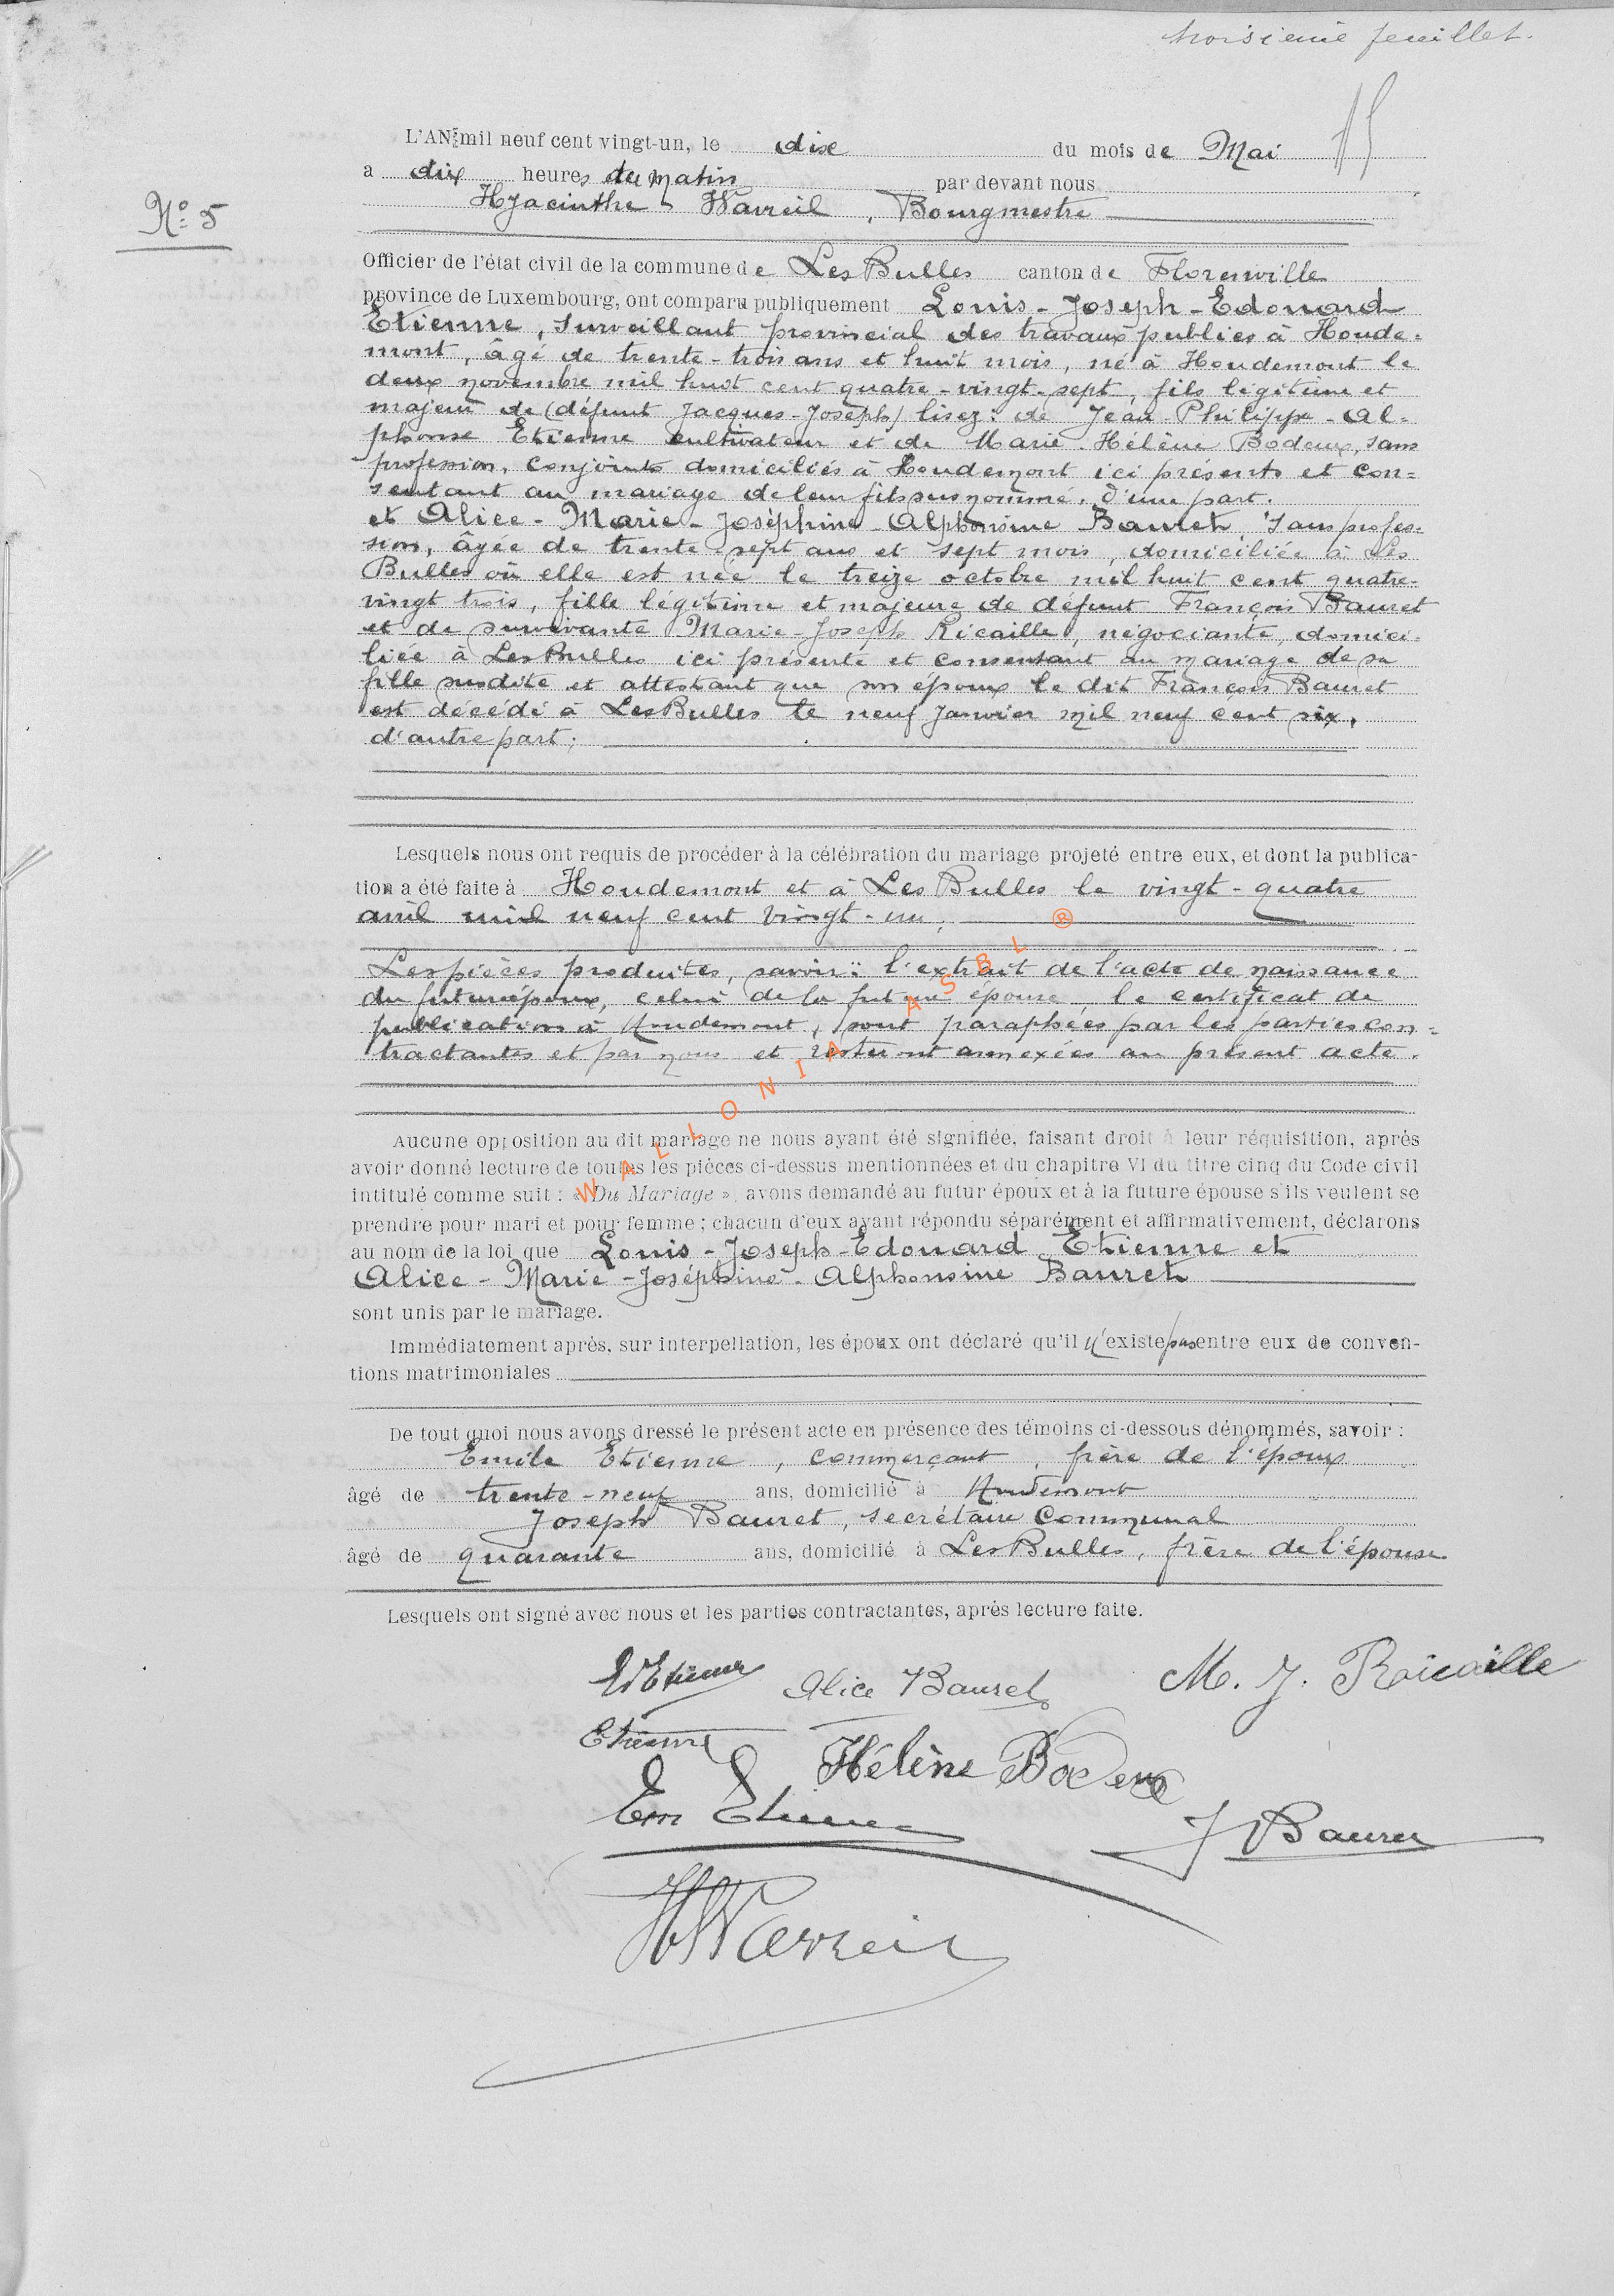 troisième feuillet.
15
L'AN mil neuf cent vingt-un, le dix du mois de Mai
a dix heures du matin par devant nous
Hyacinthe Wavreil, Bourgmestre
N° 5
Officier de l'état civil de la commune de Les Bulles canton de Florenville
province de Luxembourg, ont comparu publiquement Louis-Joseph-Edouard
Etienne, surveillant provincial des travaux publics à Houde-
mont, âgé de trente-trois ans et huit mois, né à Houdemont le
deux novembre mil huit cent quatre-vingt-sept, fils légitime et
majeur de (défunt Jacques-Joseph) lisez: de Jean Philippe-Al-
phonse Etienne cultivateur et de Marie-Hélène Bodeux, sans
profession, conjoints domiciliés à Houdemont ici présents et con=
sentant au mariage de leur fils susnommé. d'une part.
et Alice-Marie-Joséphine-Alphonsine Bauret, sans profes=
sion, âgée de trente-sept ans et sept mois, domiciliée à Les
Bulles où elle est née le treize octobre mil huit cent quatre-
vingt trois, fille légitime et majeure de défunt François Bauret
et de survivante Marie-Joseph Ricaille, négociante, domici-
liée à Les Bulles ici présente et consentant au mariage de sa
fille susdite et attestant que son époux le dit François Bauret
est décédé à Les Bulles le neuf Janvier mil neuf cent six,
d'autre part;
Lesquels nous ont requis de procéder à la célébration du mariage projeté entre eux, et dont la publica-
tion a été faite à Houdemont et à Les Bulles le vingt-quatre
avril mil neuf cent vingt-un;
Les pièces produites, savoir: l'extrait de l'acte de naissance
du futur époux, celui de la future épouse le certificat de
publication à Houdemont, sont paraphées par les parties con=
tractantes et par nous et resteront annexées au présent acte.
WALLONIA ASBL ®
Aucune opposition au dit mariage ne nous ayant été signifiée, faisant droit à leur réquisition, après
avoir donné lecture de toutes les pièces ci-dessus mentionnées et du chapitre VI du titre cinq du Code civil
intitulé comme suit : « Du Mariage », avons demandé au futur époux et à la future épouse s'ils veulent se
prendre pour mari et pour femme ; chacun d'eux ayant répondu séparément et affirmativement, déclarons
au nom de la loi que Louis-Joseph-Edouard Etienne et
Alice-Marie-Joséphine-Alphonsine Bauret
sont unis par le mariage.
Immédiatement après, sur interpellation, les époux ont déclaré qu'il n'existe pas entre eux de conven-
tions matrimoniales
De tout quoi nous avons dressé le présent acte en présence des témoins ci-dessous dénommés, savoir :
Emile Etienne, commerçant, frère de l'époux
âgé de trente-neuf ans, domicilié à Houdemont
Joseph Bauret, secrétaire communal
âgé de quarante ans, domicilié à Les Bulles, frère de l'épouse
Lesquels ont signé avec nous et les parties contractantes, après lecture faite.
Etienne Alice Bauret M. J. Ricaille
Etienne Hélène Bodeux
Em Etienne J Bauret
H Wavreil